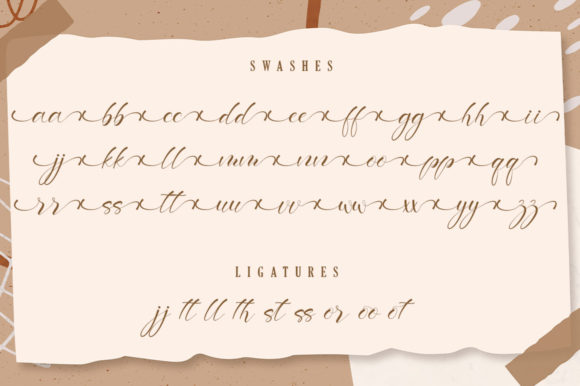 SWASHES
aa bb cc dd ee ff gg hh ii
jj kk ll mm nn oo pp qq
rr ss tt uu vv ww xx yy zz
LIGATURES
jj tt ll th st ss or oo ot